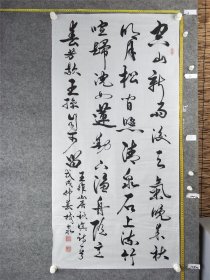 空山新雨後天氣晚來秋
明月松間照清泉石上流竹
喧歸浣女蓮動下漁舟隨意
春芳歇王孫自可留
王維山居秋暝詩一首
戊戌仲夏